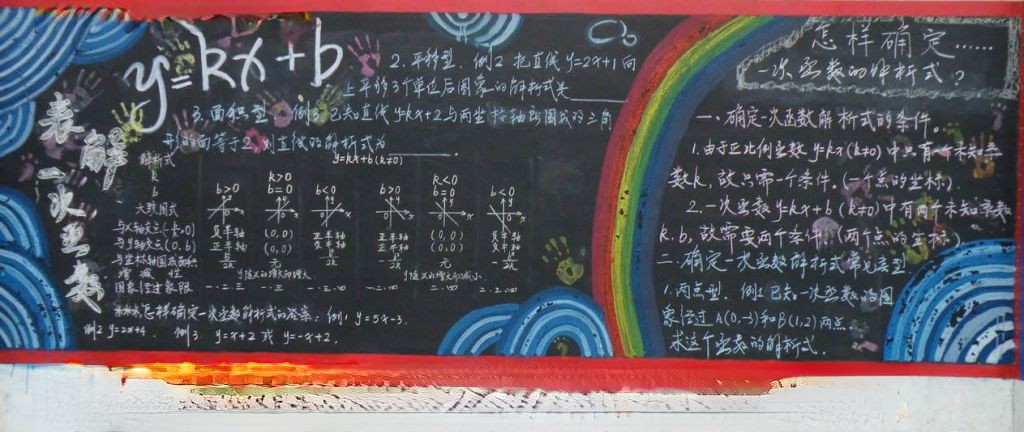 怎样确定……
一次函数的解析式？
一、确定一次函数解析式的条件。
1.由于正比例函数 y=kx(k≠0)中只有一个未知系
数k,故只需一个条件。(一个点的坐标)
2.一次函数y=kx+b(k≠0)中有两个未知系数
k.b,故需要两个条件。(两个点的坐标)
二.确定一次函数解析式常见类型
1.两点型.例1已知一次函数的图
象经过A(0,-3)和B(1,2)两点.
求这个函数的解析式.
2.平移型.例2把直线y=2x+1向
上平移3个单位后图象的解析式是
3.面积型.例3已知直线y=kx+2与两坐标轴所围成的三角
形的面等于2,则直线的解析式为
y=kx+b
表解一次函数
解析式
y=kx+b(k≠0)
k
k>0
k<0
b
b>0 b=0 b<0 b>0 b=0 b<0
大致图式
与x轴交点(-b/k,0) 负半轴 (0,0) 正半轴 正半轴 (0,0) 负半轴
与y轴交点(0,b) 正半轴 (0,0) 负半轴 正半轴 (0,0) 负半轴
与坐标轴围成面积 无 无
增减性 y随x的增大而增大 y随x的增大而减小
图象经过象限 一.二.三 一.三 一.三.四 一.二.四 二.四 二.三.四
怎样确定一次函数解析式的答案:例1 y=5x-3.
例2 y=2x+4. 例3. y=x+2 或 y=-x+2.